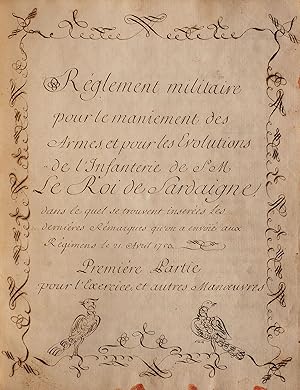 Réglement militaire
pour le maniement des
Armes et pour les Evolutions
de l'Infanterie de S. M.
Le Roi de Sardaigne
dans le quel se trouvent inserées les
dernières Remarques qu'on a envoiés aux
Régimens le 21 Avril
Première Partie
pour l'Exercice, et autres Manœuvres